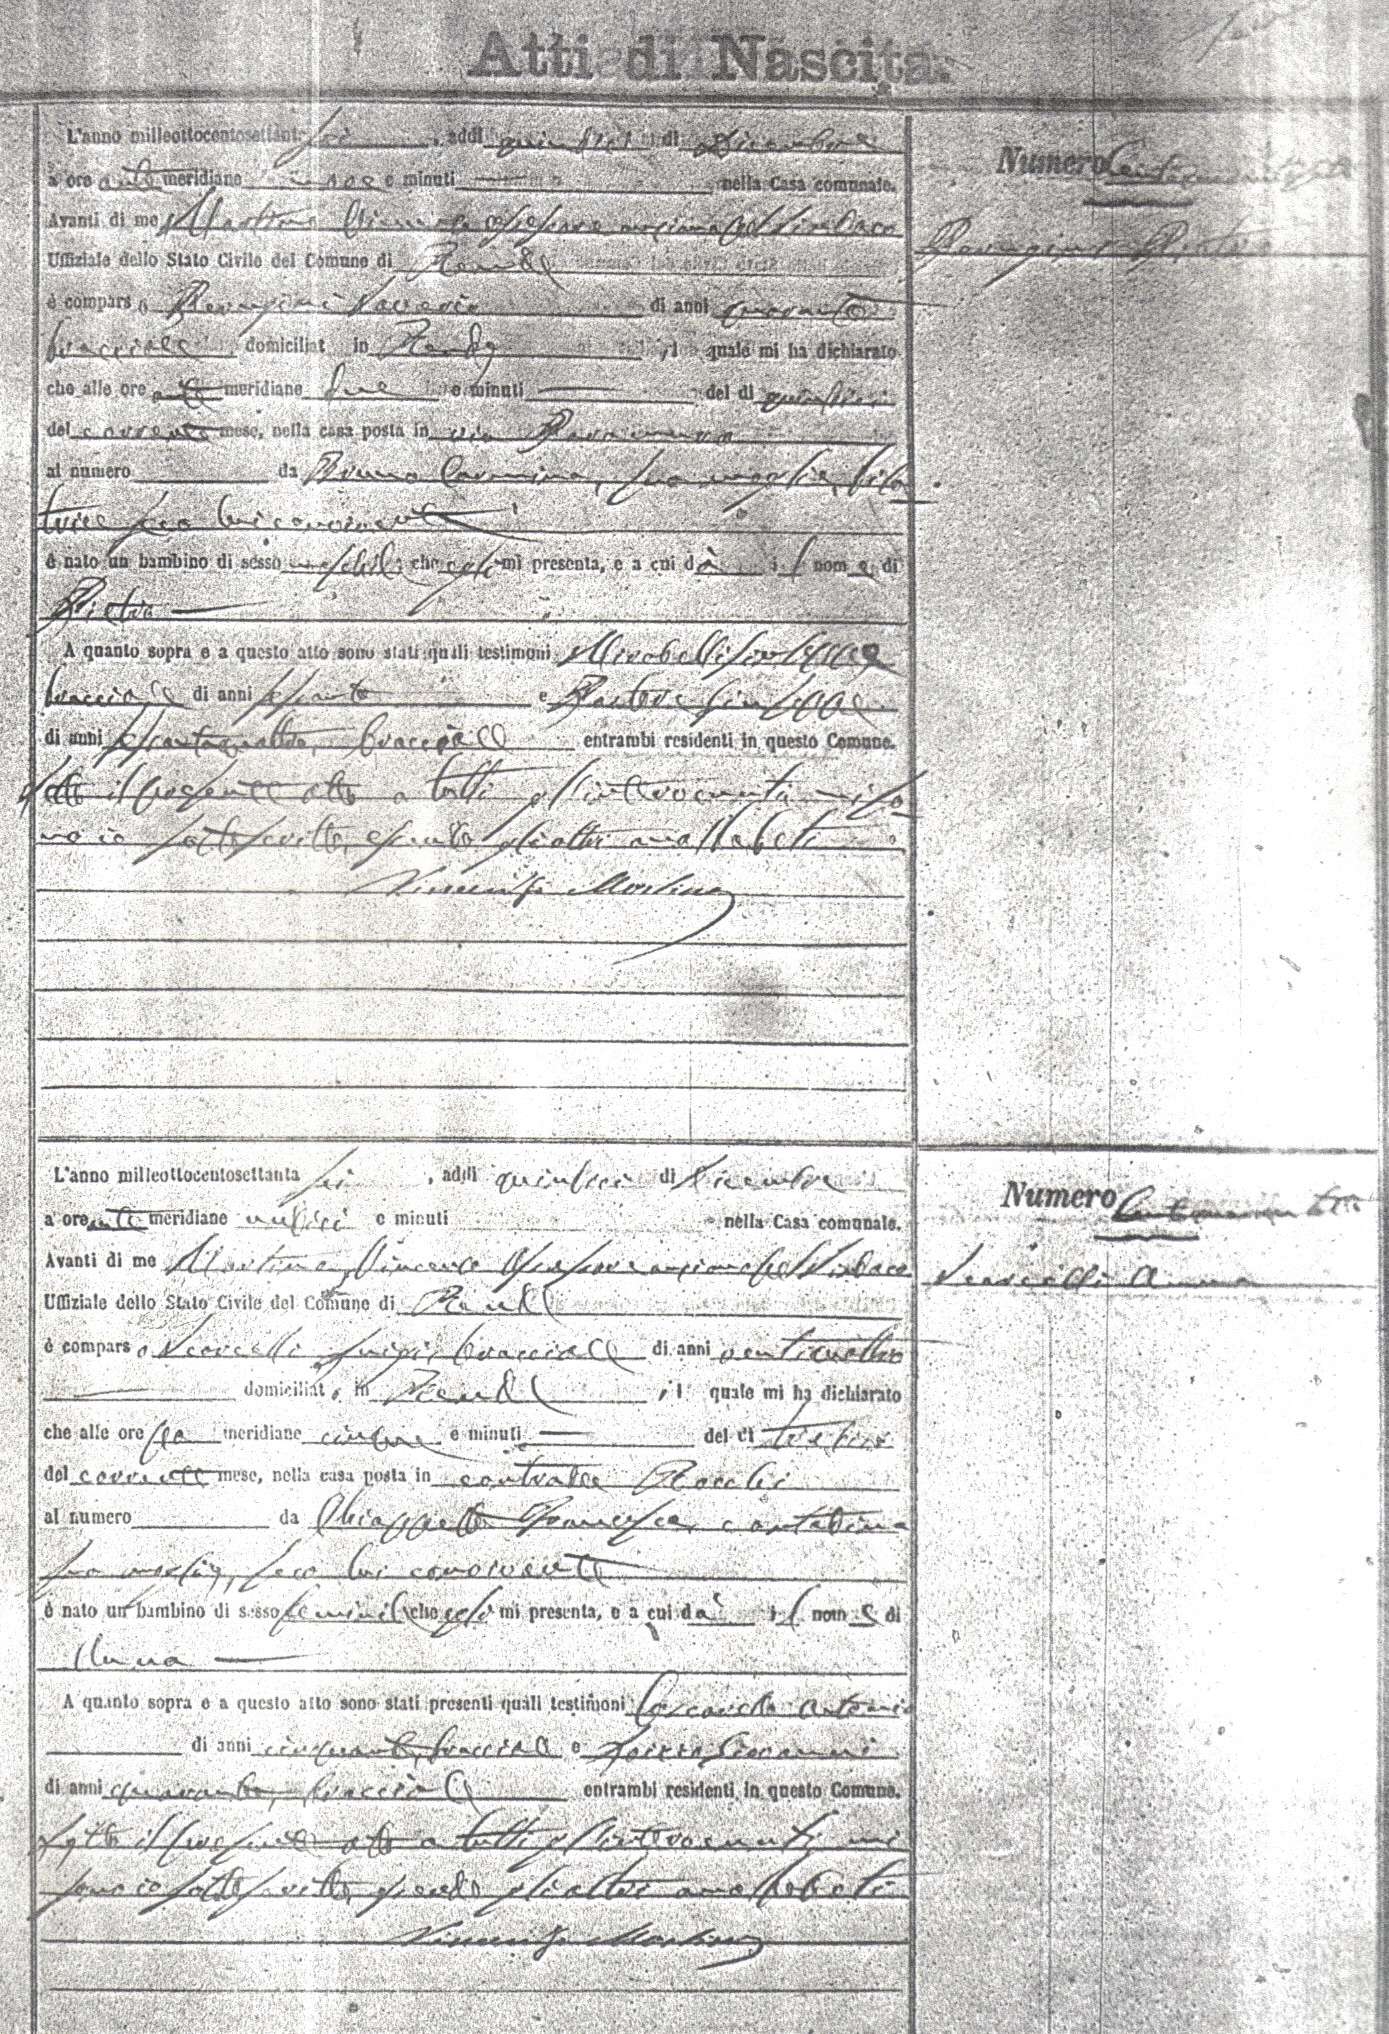 Atti di Nascita.
L'anno milleottocentosettanta sei, addì quindici di Dicembre
a ore ante meridiane e minuti — nella Casa comunale.
Avanti di me Martino Vincenzo assessore anziano pel Sindaco
Uffiziale dello Stato Civile del Comune di Rende
è comparso Saverio di anni quaranta
bracciale domiciliat in Rende, il quale mi ha dichiarato
che alle ore ante meridiane due e minuti — del dì quindici
del corrente mese, nella casa posta in via
al numero da Bruno Carmina, sua moglie, fila
trice seco lui convivente
è nato un bambino di sesso maschile che egli mi presenta, e a cui dà il nome di
Pietro —
A quanto sopra e a questo atto sono stati quali testimoni Mirabelli Giuseppe
bracciale di anni sessanta e Pastore Giuseppe
di anni sessantaquattro, bracciale entrambi residenti in questo Comune.
Letto il presente atto a tutti gl'intervenuti mi so
no io sottoscritto, essendo gli altri analfabeti
Vincenzo Martino
Numero
Pietro
L'anno milleottocentosettanta sei, addì quindici di Dicembre
a ore ante meridiane undici e minuti nella Casa comunale.
Avanti di me Martino Vincenzo Assessore anziano pel Sindaco
Uffiziale dello Stato Civile del Comune di Rende
è comparso Luigi, bracciale di anni ventiquattro
— domiciliato in Rende, il quale mi ha dichiarato
che alle ore po meridiane cinque e minuti — del dì tredici
del corrente mese, nella casa posta in contrada Rocchi
al numero da Chiappetta Francesca, contadina
sua moglie, seco lui convivente
è nato un bambino di sesso feminile che egli mi presenta, e a cui dà il nome di
Anna —
A quanto sopra e a questo atto sono stati presenti quali testimoni Antonio
di anni cinquanta, bracciale e Giovanni
di anni quaranta, bracciale entrambi residenti in questo Comune.
Letto il presente atto a tutti gl'intervenuti mi
sono io sottoscritto, essendo gli altri analfabeti
Vincenzo Martino
Numero
Anna